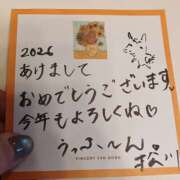 2026
あけまして
おめでとうございます。
今年もよろしくね♡
うっふ〜ん。
VINCENT VAN GOGH